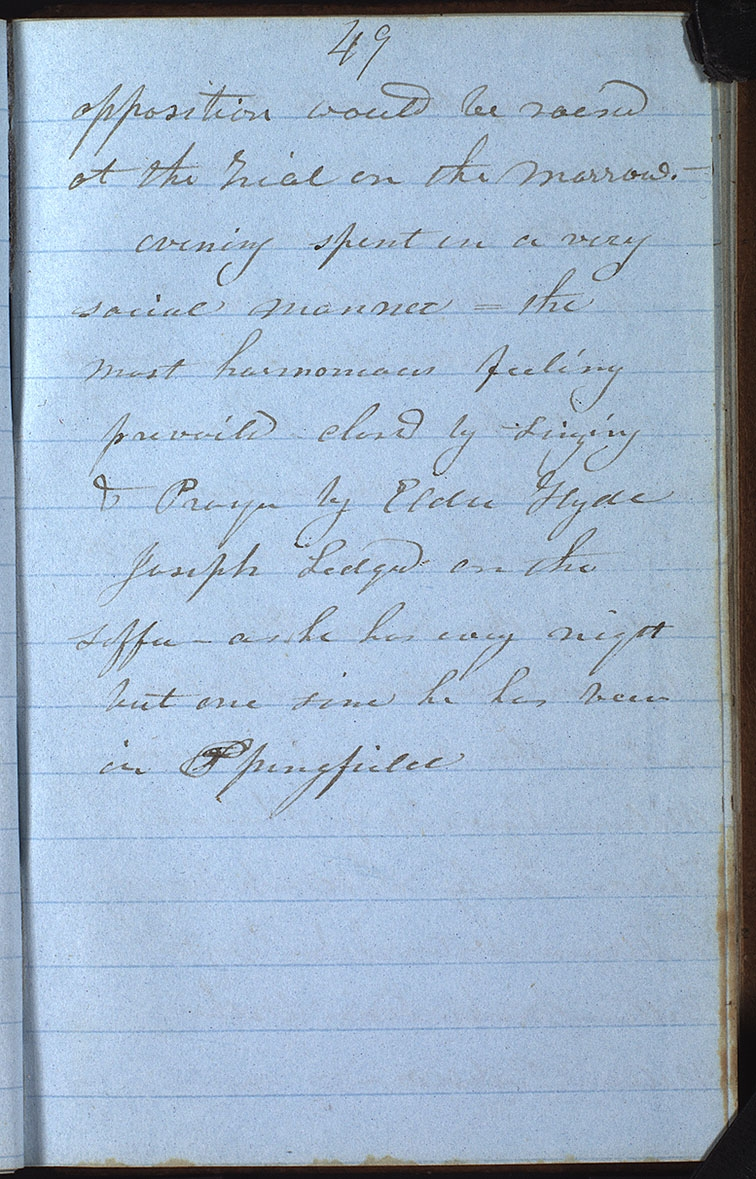 49
opposition would be raised
at the trial on the morrow.—
evening spent in a very
social manner = the
most harmonious feeling
prevaild closed by singing
& Prayer by Elder Hyde
Joseph Lodged on the
soffa — as he has every night
but one since he has been
in Springfield